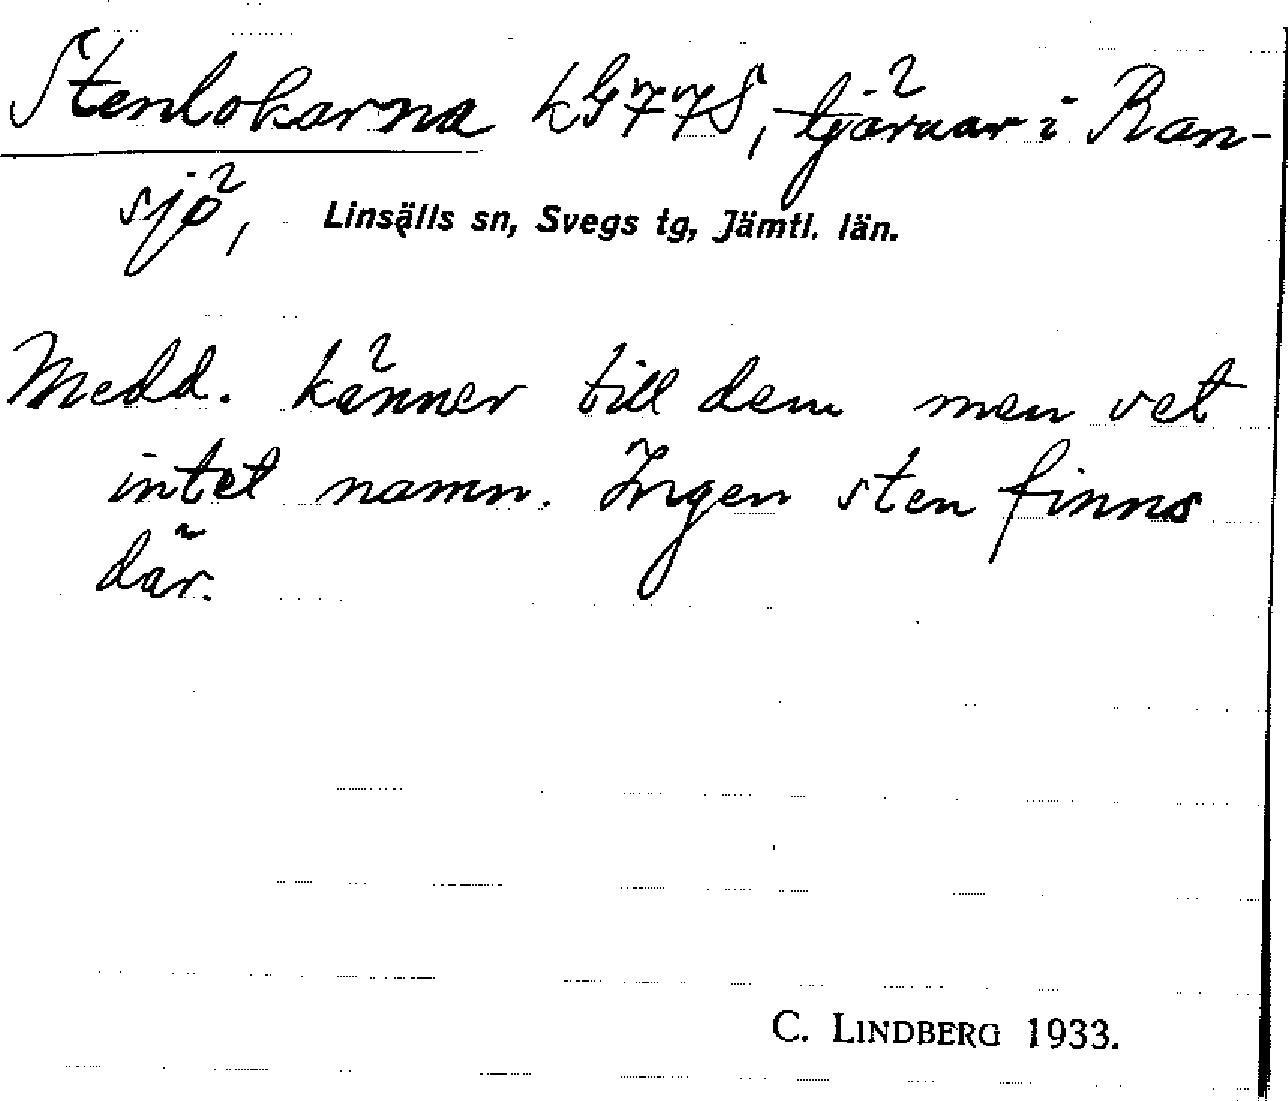 Stenlokarna kG77S, tjärnar i Ran-
sjö, Linsälls sn, Svegs tg, Jämtl. län.
Medd. känner till dem men vet
intet namn. Ingen sten finns
där.
C. LINDBERG 1933.